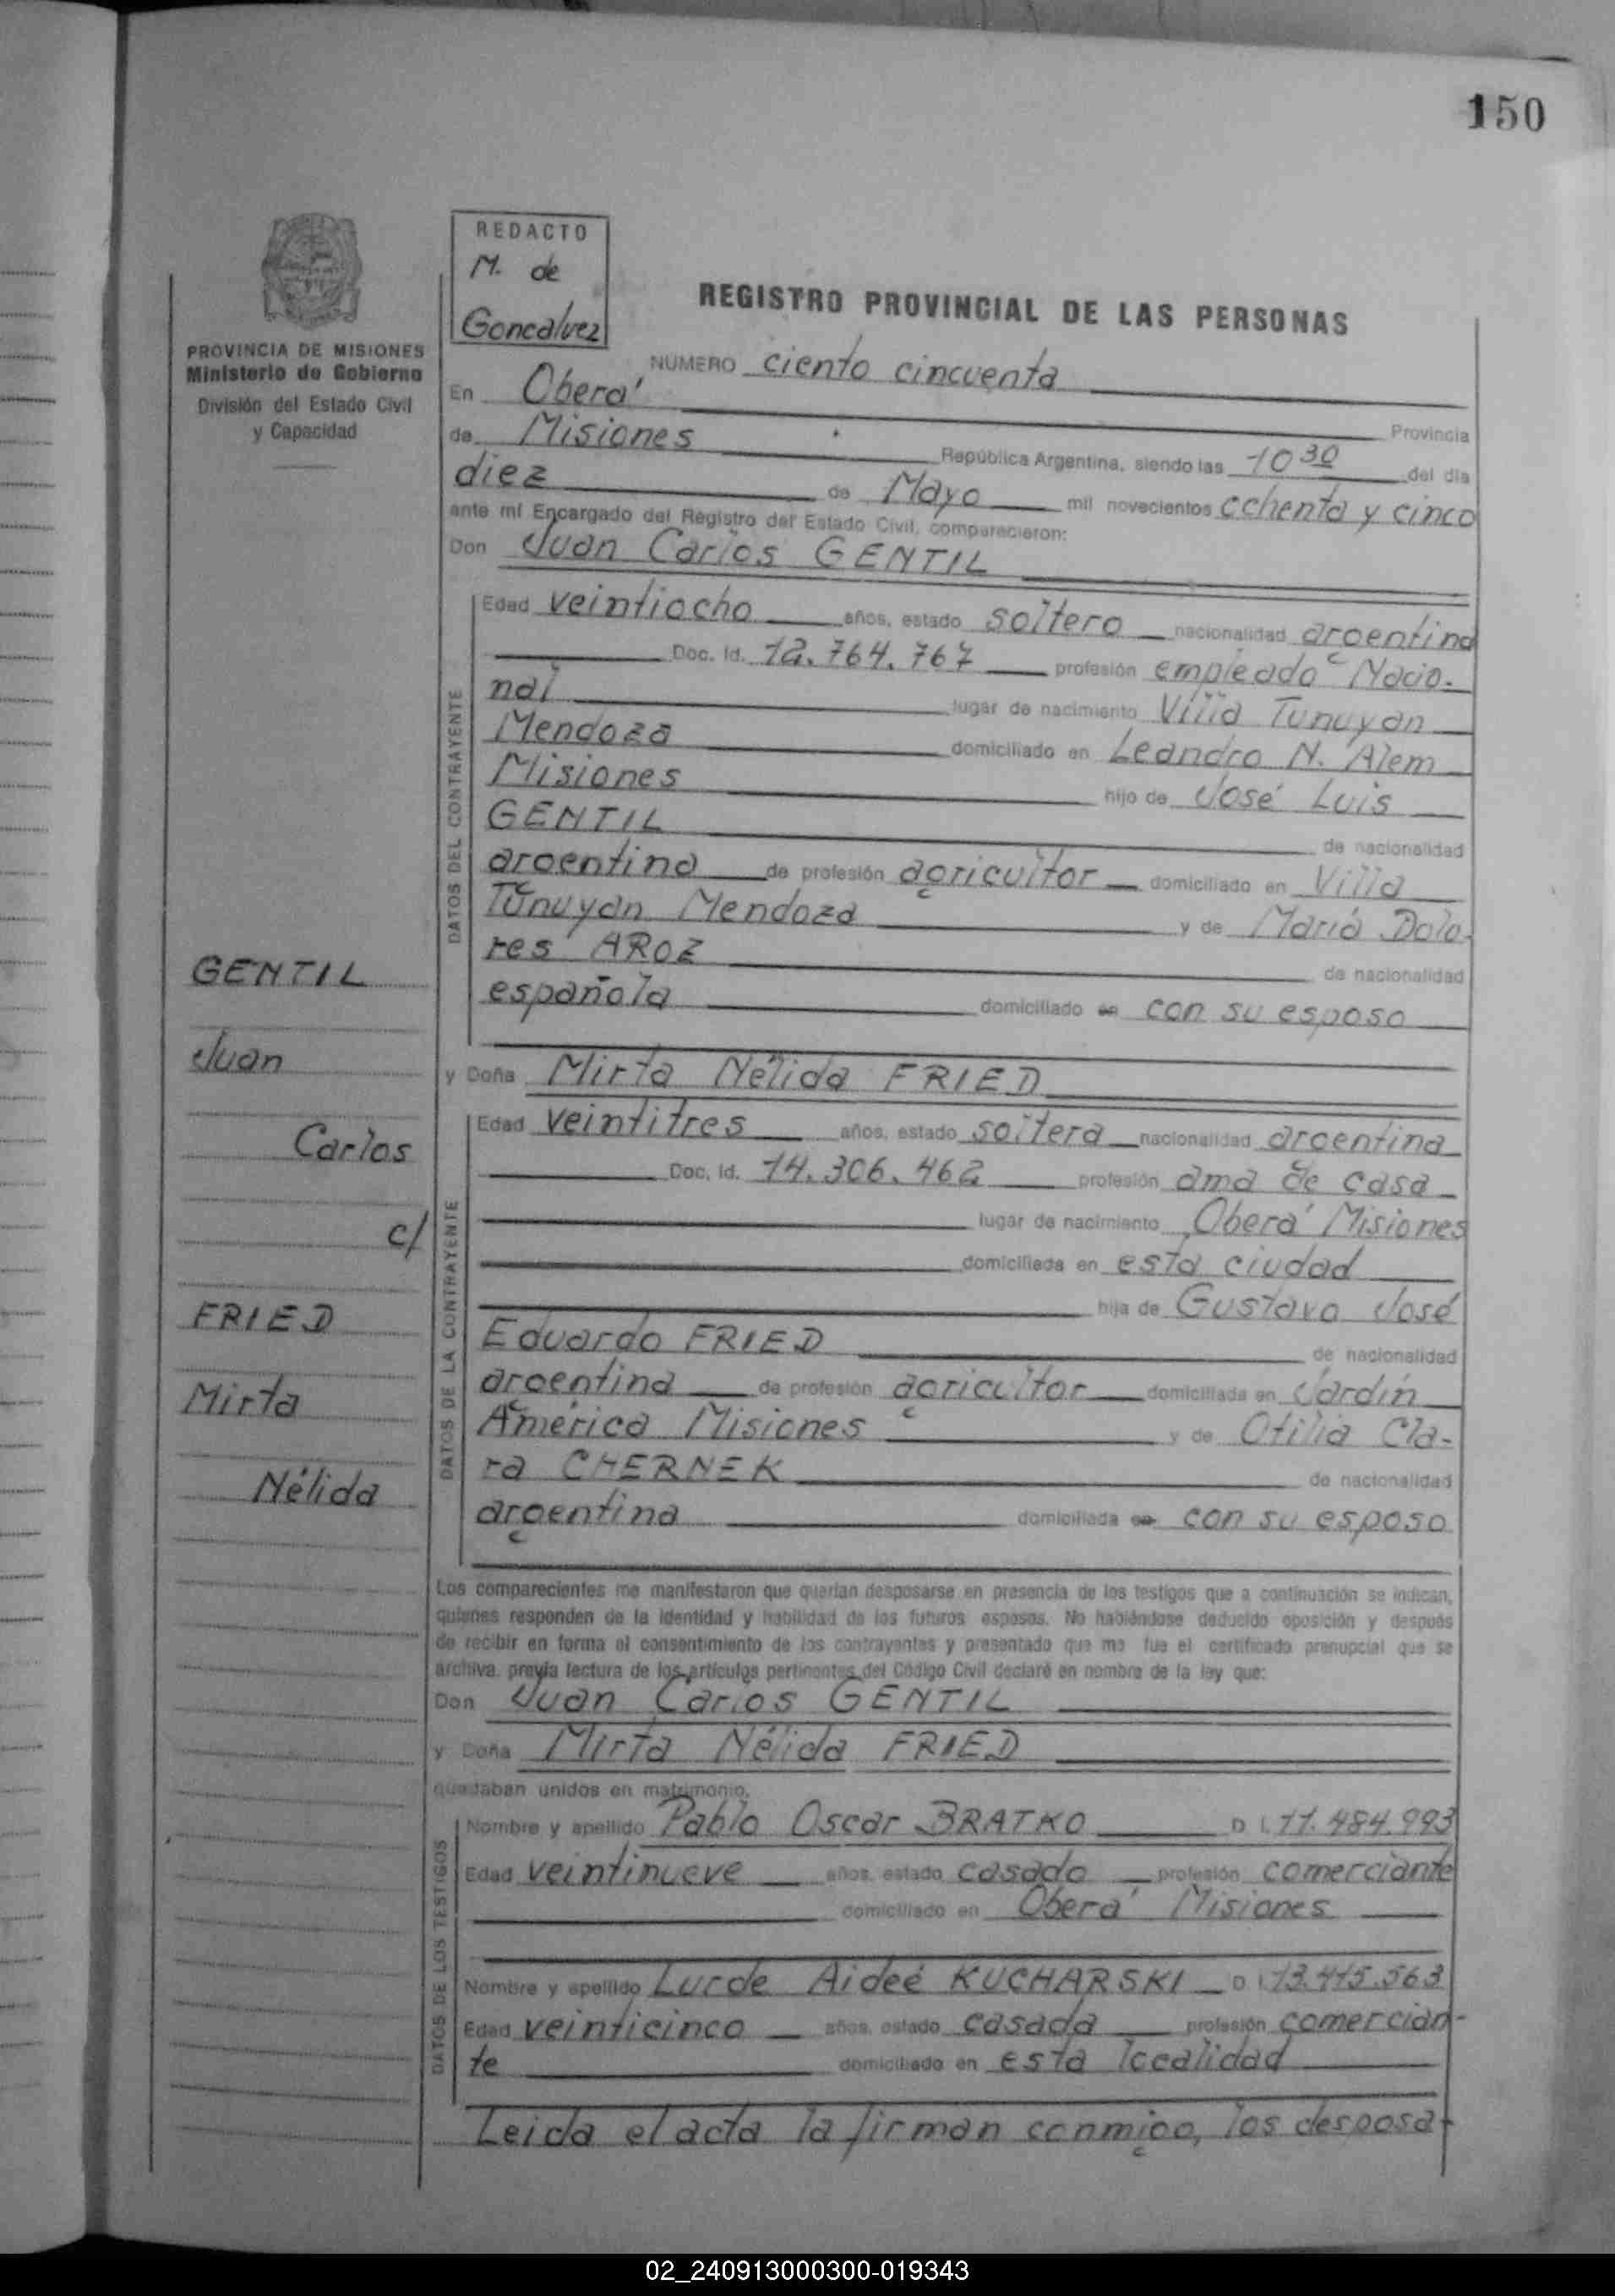 150
REDACTO
M. de
Goncalvez
REGISTRO PROVINCIAL DE LAS PERSONAS
PROVINCIA DE MISIONES
Ministerio de Gobierno
División del Estado Civil
y Capacidad
NUMERO ciento cincuenta
En Oberá
Provincia
de Misiones República Argentina, siendo las 10 30 del día
diez de Mayo mil novecientos ochenta y cinco
ante mí Encargado del Registro del Estado Civil, comparecieron:
Don Juan Carlos GENTIL
DATOS DEL CONTRAYENTE
Edad veintiocho años, estado soltero nacionalidad argentina
Doc. Id. 12.764.767 profesión empleado Nacio-
nal lugar de nacimiento Villa Tunuyan
Mendoza domiciliado en Leandro N. Alem
Misiones hijo de José Luis
GENTIL de nacionalidad
argentina de profesión agricultor domiciliado en Villa
Tunuyan Mendoza y de María Dolo-
res AROZ de nacionalidad
española domiciliado en con su esposo
y Doña Mirta Nélida FRIED
DATOS DE LA CONTRAYENTE
Edad veintitres años, estado soltera nacionalidad argentina
Doc. Id. 14.306.462 profesión ama de casa
lugar de nacimiento Oberá Misiones
domiciliada en esta ciudad
hija de Gustavo José
Eduardo FRIED de nacionalidad
argentina de profesión agricultor domiciliada en Jardín
América Misiones y de Otilia Cla-
ra CHERNEK de nacionalidad
argentina domiciliada en con su esposo
GENTIL
Juan
Carlos
c/
FRIED
Mirta
Nélida
Los comparecientes me manifestaron que querían desposarse en presencia de los testigos que a continuación se indican,
quienes responden de la identidad y habilidad de los futuros esposos. No habiéndose deducido oposición y después
de recibir en forma el consentimiento de los contrayentes y presentado que me fue el certificado prenupcial que se
archiva, previa lectura de los artículos pertinentes del Código Civil declaré en nombre de la ley que:
Don Juan Carlos GENTIL
y Doña Mirta Nélida FRIED
quedaban unidos en matrimonio.
DATOS DE LOS TESTIGOS
Nombre y apellido Pablo Oscar BRATKO D I. 11.484.993
Edad veintinueve años, estado casado profesión comerciante
domiciliado en Oberá Misiones
Nombre y apellido Lurde Aideé KUCHARSKI D I. 13.415.563
Edad veinticinco años, estado casada profesión comercian-
te domiciliado en esta localidad
Leida el acta la firman conmigo, los desposa-
02_240913000300-019343